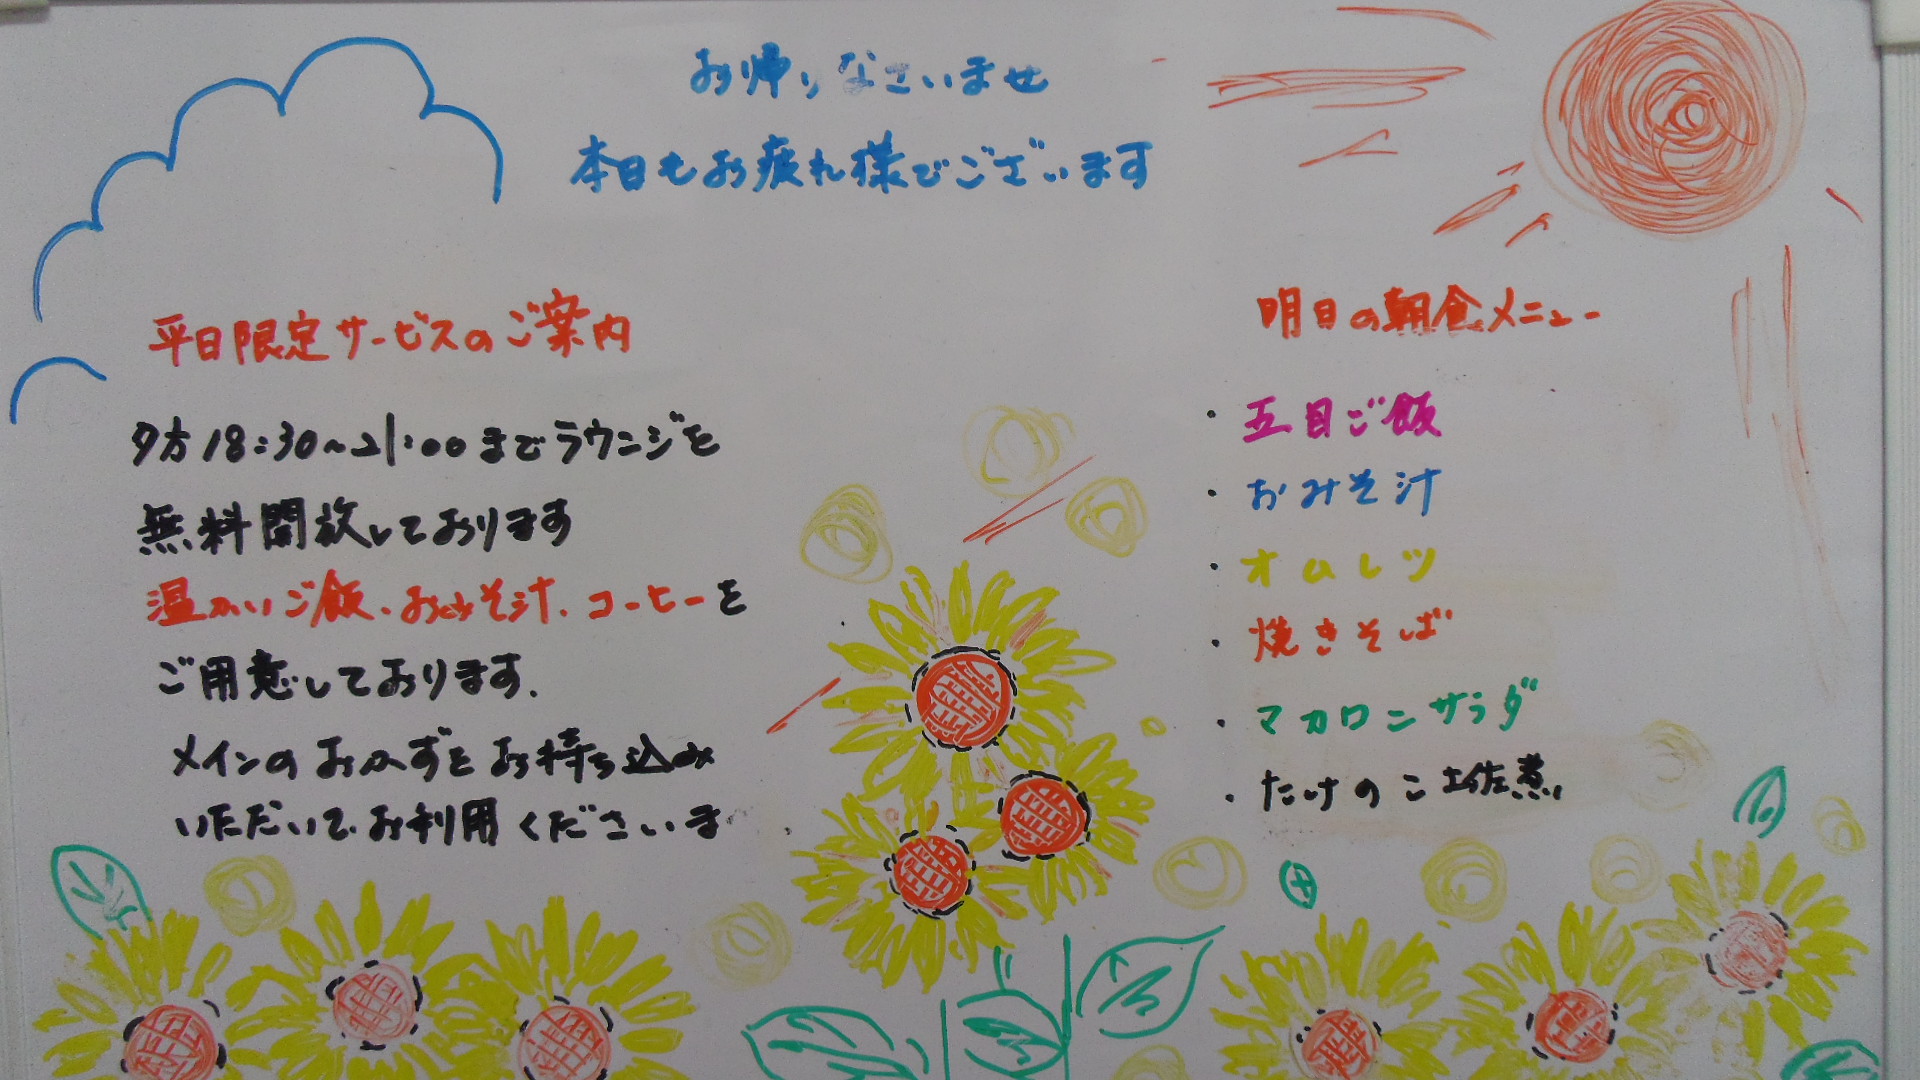 お帰りなさいませ
本日もお疲れ様でございます
平日限定サービスのご案内
夕方18:30~21:00までラウンジを
無料開放しております
温かいご飯、おみそ汁、コーヒーを
ご用意しております。
メインのおかずをお持ち込み
いただいてお利用くださいま
明日の朝食メニュー
・五目ご飯
・おみそ汁
・オムレツ
・焼きそば
・マカロニサラダ
・たけのこ土佐煮